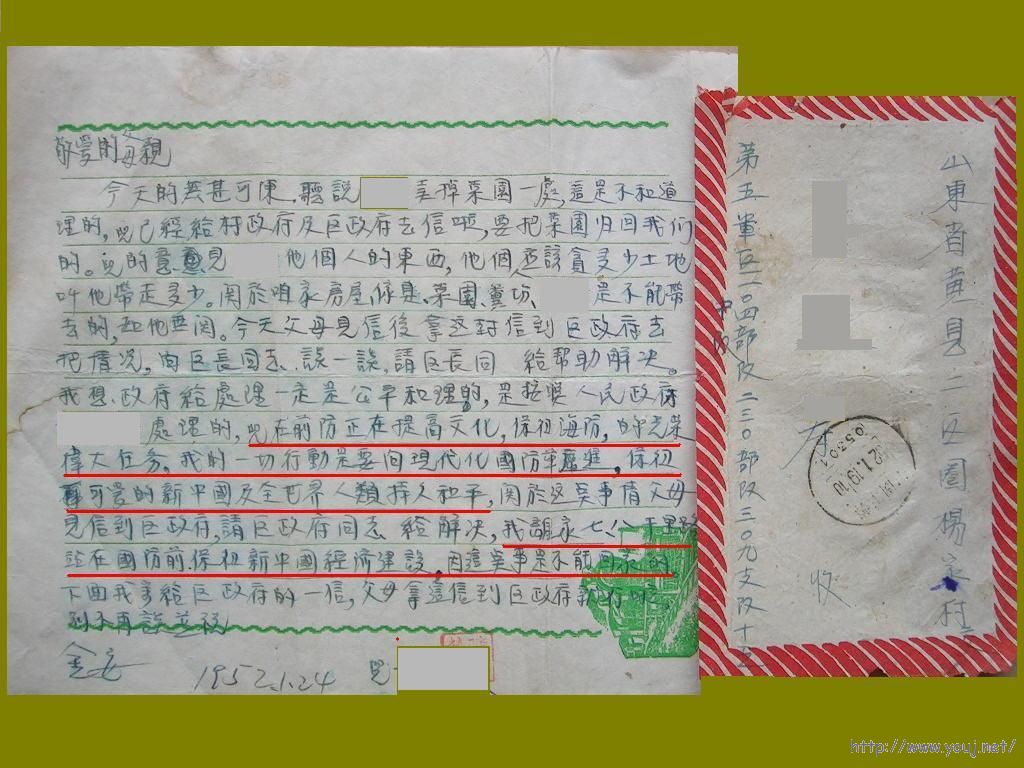 敬愛的母親
今天的無甚可陳,聽說 弄掉菜園一處,這是不和道
理的,兒已經給村政府及區政府去信啦,要把菜園归回我们
的。兒的意見 他個人的東西,他個应該貪多少土地
叫他帶走多少。関於咱家房屋 菜園、糞坊、 是不能帶
去的,和他無関。今天父母見信後拿这封信到区政府去
把情况,向区長同志,談一談,請区長同 給帮助解决。
我想,政府給處理一定是公平和理的,是按照人民政府
處理的,兒在前防正在提高文化,保衽海防,的光荣
偉大任务,我的一切行動是要向現代化國防軍 進,保衽
可愛的新中國及全世界人類持久和平,関於这 事情父母
見信到区政府,請区政府同志給解决,我離家七八
站在國防前,保衽新中國經济建設,因這 事是不能回家的
下面我 給区政府的一信,父母拿這信到区政府
别不再談並祝
金安
1952.1.24 兒
山東省黄县二区圈楊家村
收
第五軍区二〇四部队二三〇部队三〇九支队十五
中队
http://www.youj.net/